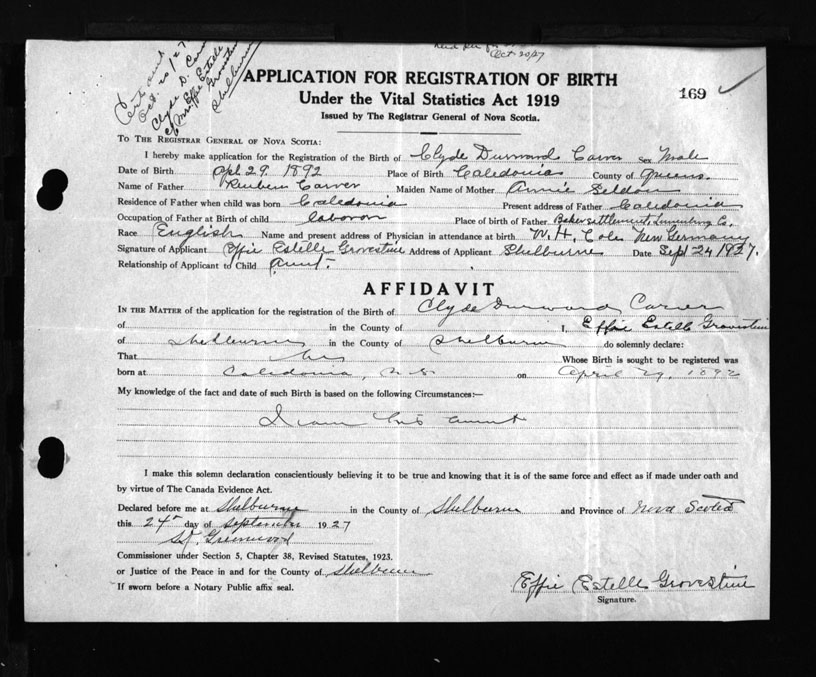 Oct 20/27
Oct. 20/27
Clyde D.
Effie Estelle
Shelburne
APPLICATION FOR REGISTRATION OF BIRTH
169
Under the Vital Statistics Act 1919
Issued by The Registrar General of Nova Scotia.
TO THE REGISTRAR GENERAL OF NOVA SCOTIA:
I hereby make application for the Registration of the Birth of Clyde Durward Carver sex Male
Date of Birth Apl 29. 1892 Place of Birth Caledonia County of Queens.
Name of Father Reuben Carver Maiden Name of Mother Annie Seldon
Residence of Father when child was born Caledonia Present address of Father Caledonia
Occupation of Father at Birth of child laboror Place of birth of Father Baker settlement Lunenburg Co.
Race English Name and present address of Physician in attendance at birth W. H. Cole New Germany
Signature of Applicant Effie Estelle Grovestine Address of Applicant Shelburne Date Sept 24 1927.
Relationship of Applicant to Child Aunt.
AFFIDAVIT
IN THE MATTER of the application for the registration of the Birth of Clyde Durward Carver
of in the County of I, Effie Estelle Grovestine
of Shelburne in the County of Shelburne do solemnly declare:
That he Whose Birth is sought to be registered was
born at Caledonia, N.S. on April 29, 1892
My knowledge of the fact and date of such Birth is based on the following Circumstances:—
I am his aunt
I make this solemn declaration conscientiously believing it to be true and knowing that it is of the same force and effect as if made under oath and
by virtue of The Canada Evidence Act.
Declared before me at Shelburne in the County of Shelburne and Province of Nova Scotia
this 24th day of September 1927
Greenwood
Commissioner under Section 5, Chapter 38, Revised Statutes, 1923.
or Justice of the Peace in and for the County of Shelburne
If sworn before a Notary Public affix seal.
Effie Estelle Grovestine
Signature.